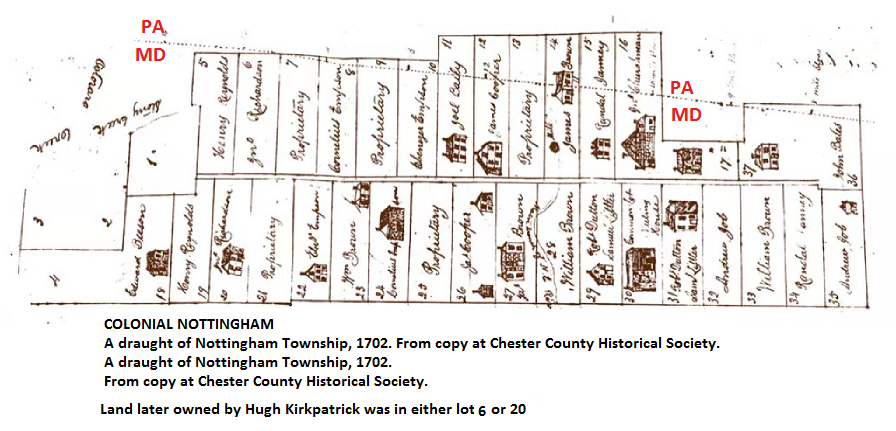 PA
MD
PA
MD
5
Henry Reynolds
6
Jno Richardson
7
Proprietary
8
Cornelius Empson
9
Proprietary
10
Ebenezer Empson
11
Joel Baily
12
James Cooper
13
Proprietary
14
James Brown
15
Randal Janney
16
1
2
3
4
17
37
John Bales
36
Edward Beeson
18
Henry Reynolds
19
Richardson
20
Proprietary
21
Empson
22
Wm Brown
23
24
Proprietary
25
Jas Cooper
26
Brown
27
28
William Brown
29
Common Lot
30
31
Andrew Job
32
William Brown
33
Randal Janney
34
Andrew Job
35
COLONIAL NOTTINGHAM
A draught of Nottingham Township, 1702. From copy at Chester County Historical Society.
A draught of Nottingham Township, 1702.
From copy at Chester County Historical Society.
Land later owned by Hugh Kirkpatrick was in either lot 6 or 20